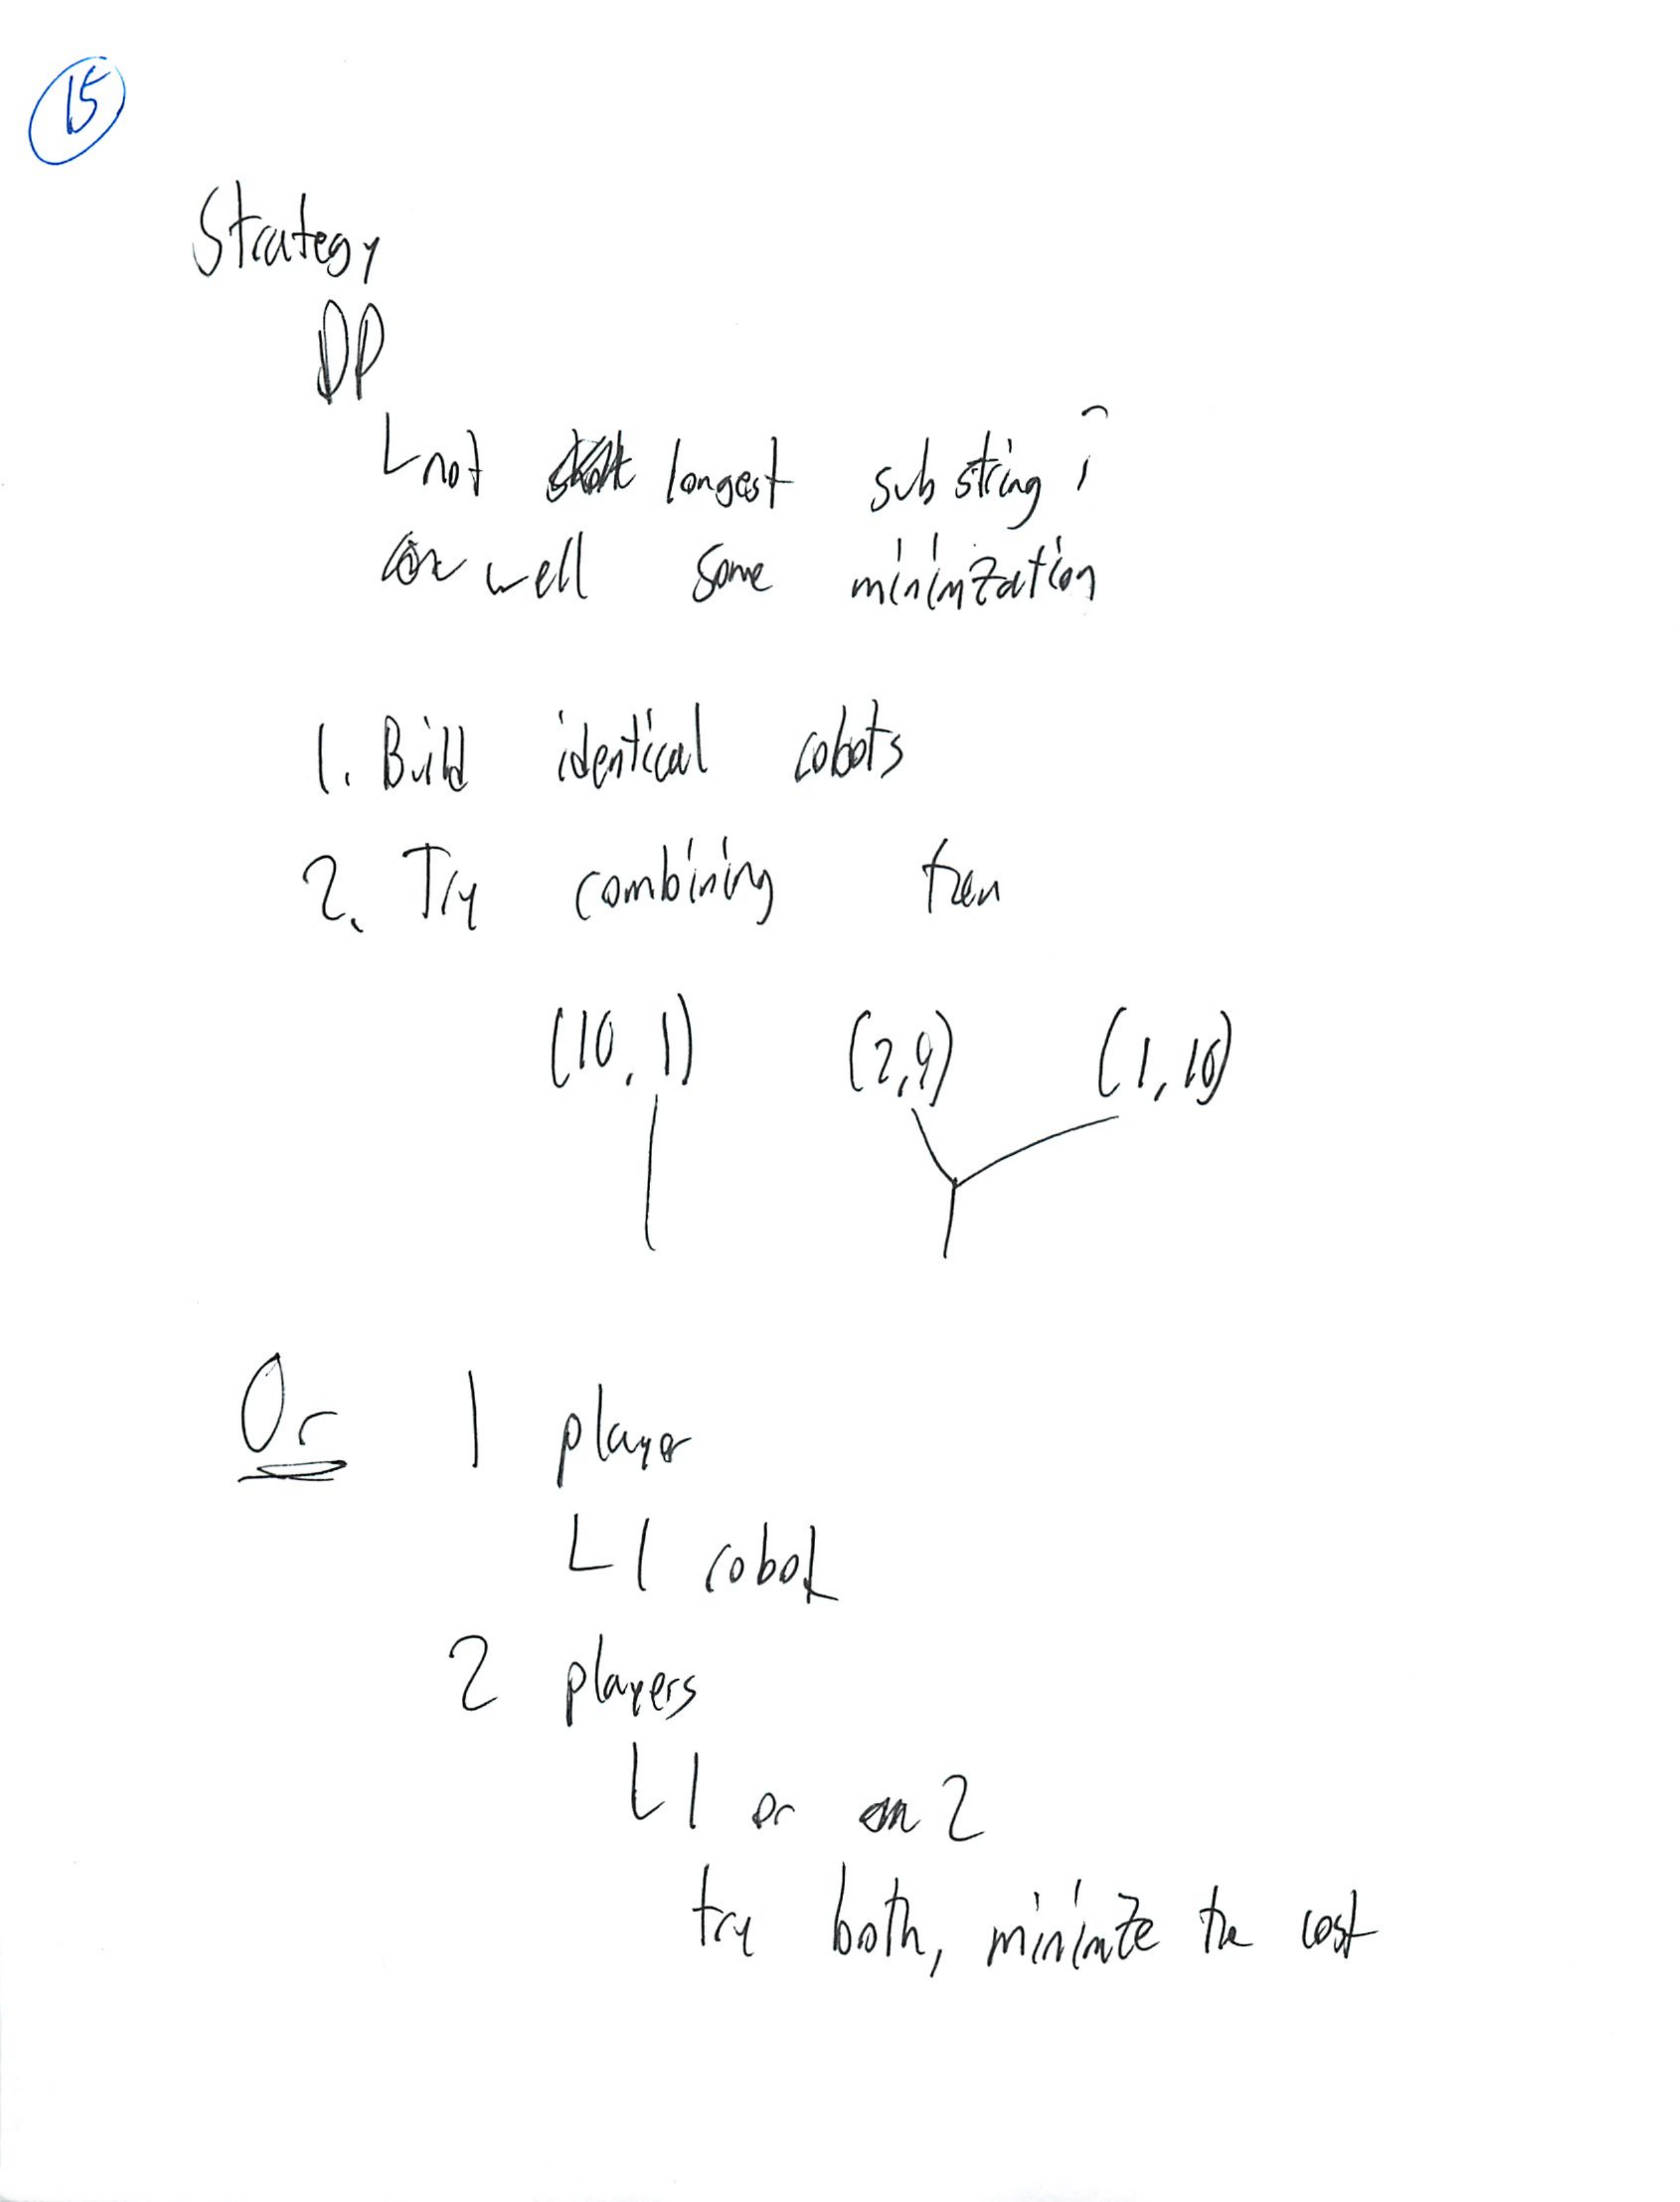 15
Strategy
DP
not longest substring ?
well some minimzation
1. Build identical robots
2. Try combining them
(10, 1) (2,9) (1, 10)
Or 1 player
1 robot
2 players
1 or 2
try both, minimize the cost